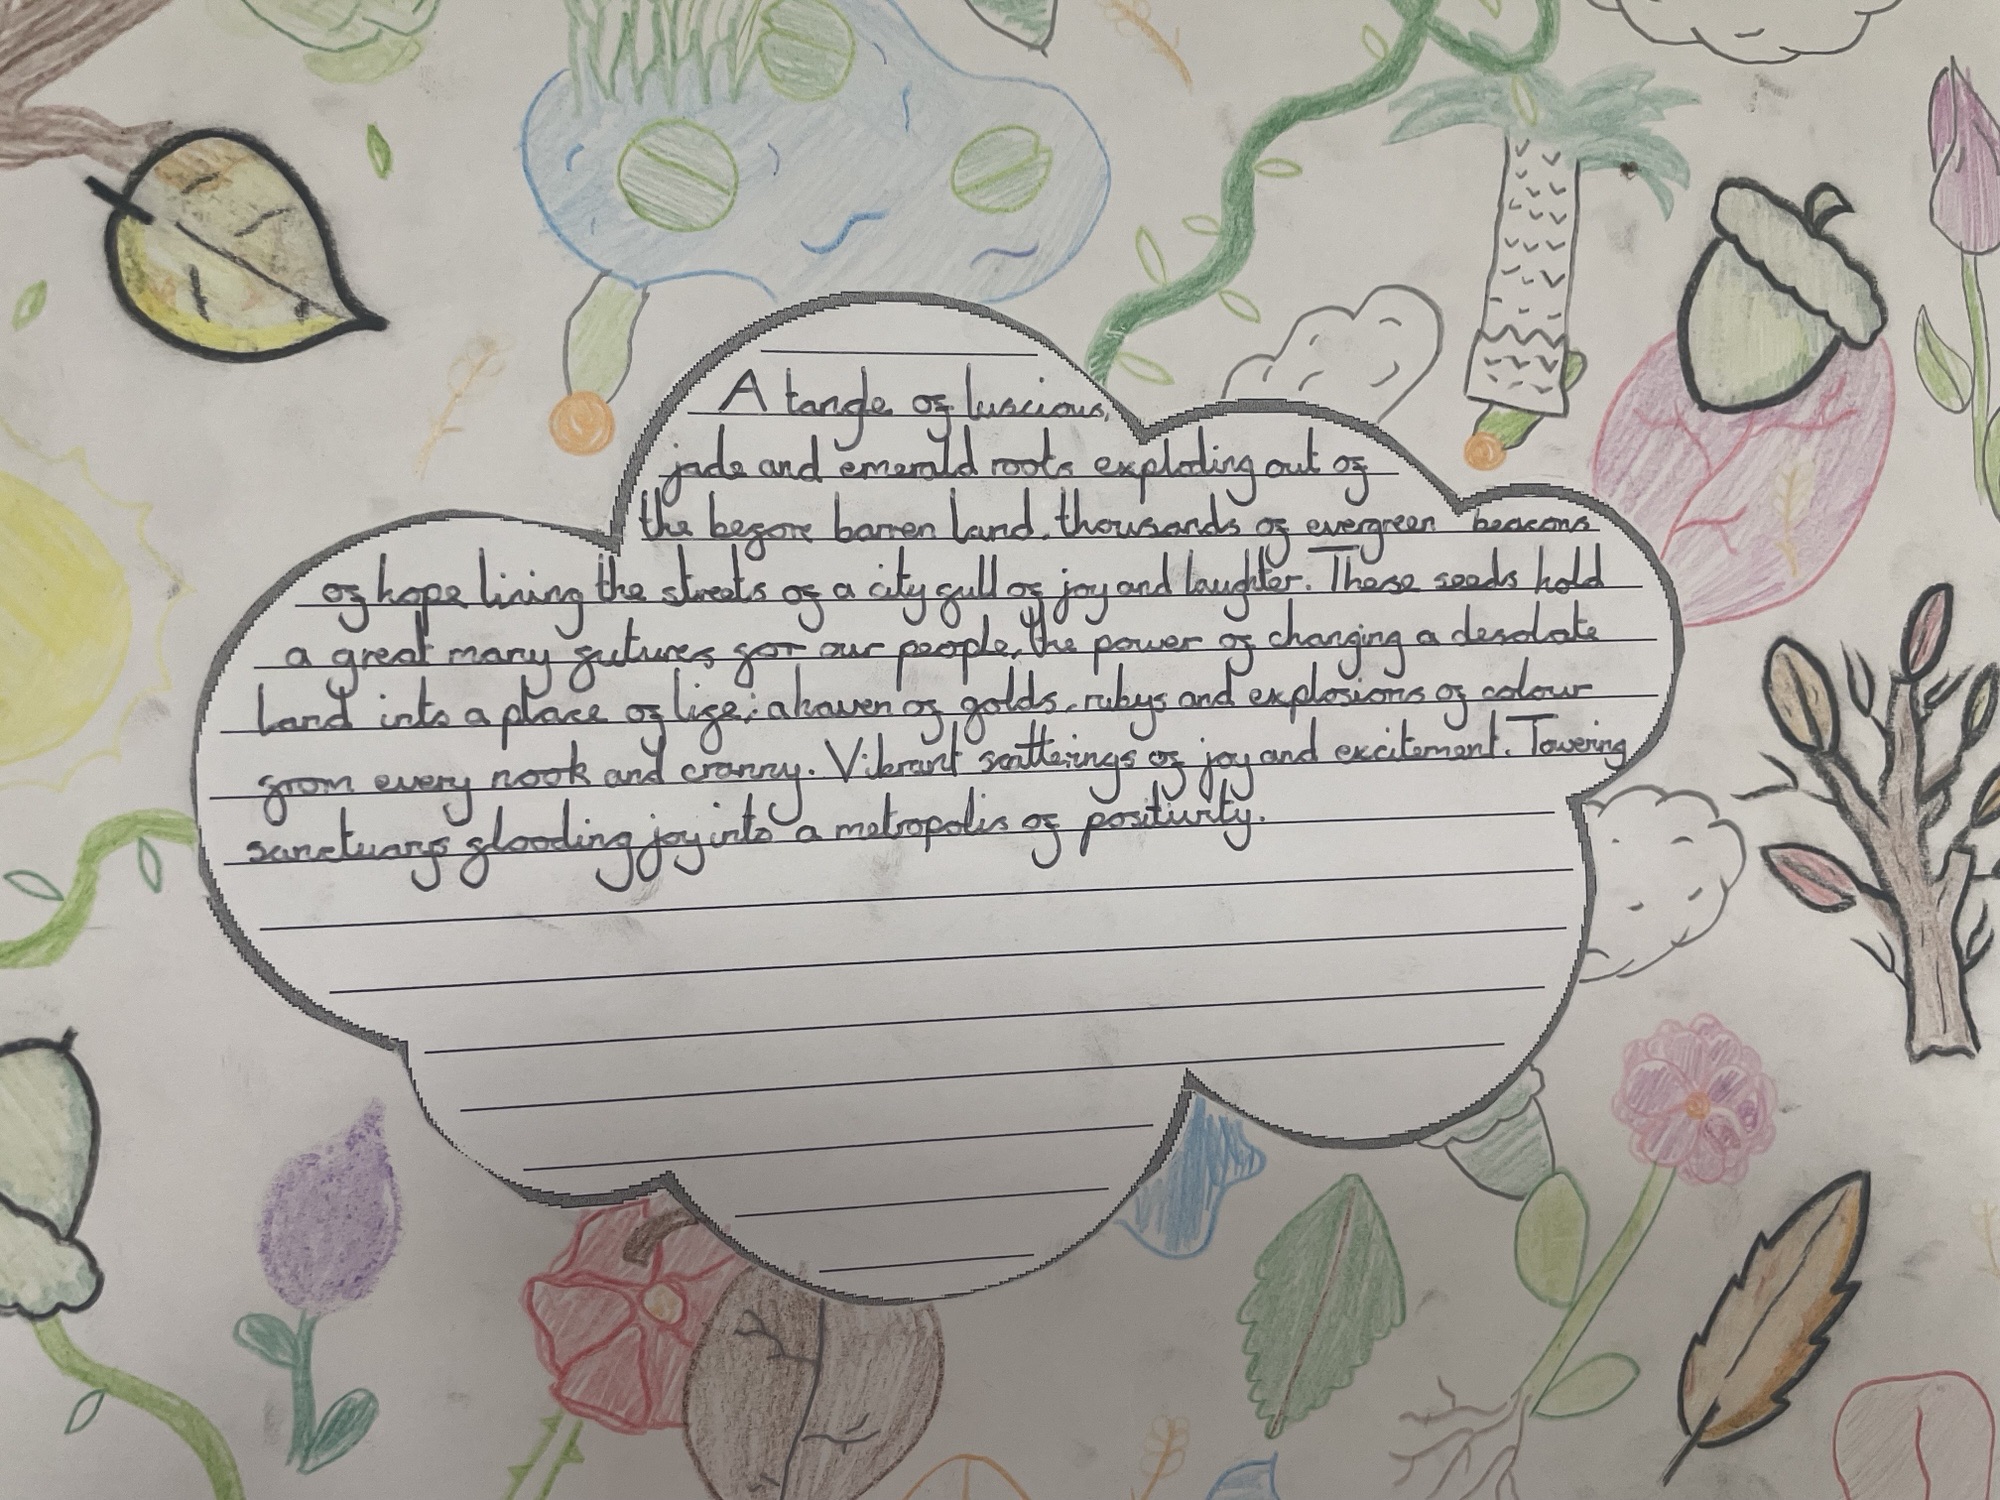 A tangle of luscious,
jade and emerald roots exploding out of
the before barren land, thousands of evergreen beacons
of hope lining the streets of a city full of joy and laughter. These seeds hold
a great many futures for our people, the power of changing a desolate
land into a place of life; a haven of golds, rubys and explosions of colour
from every nook and cranny. Vibrant scatterings of joy and excitement. Towering
sanctuarys flooding joy into a metropolis of positivity.